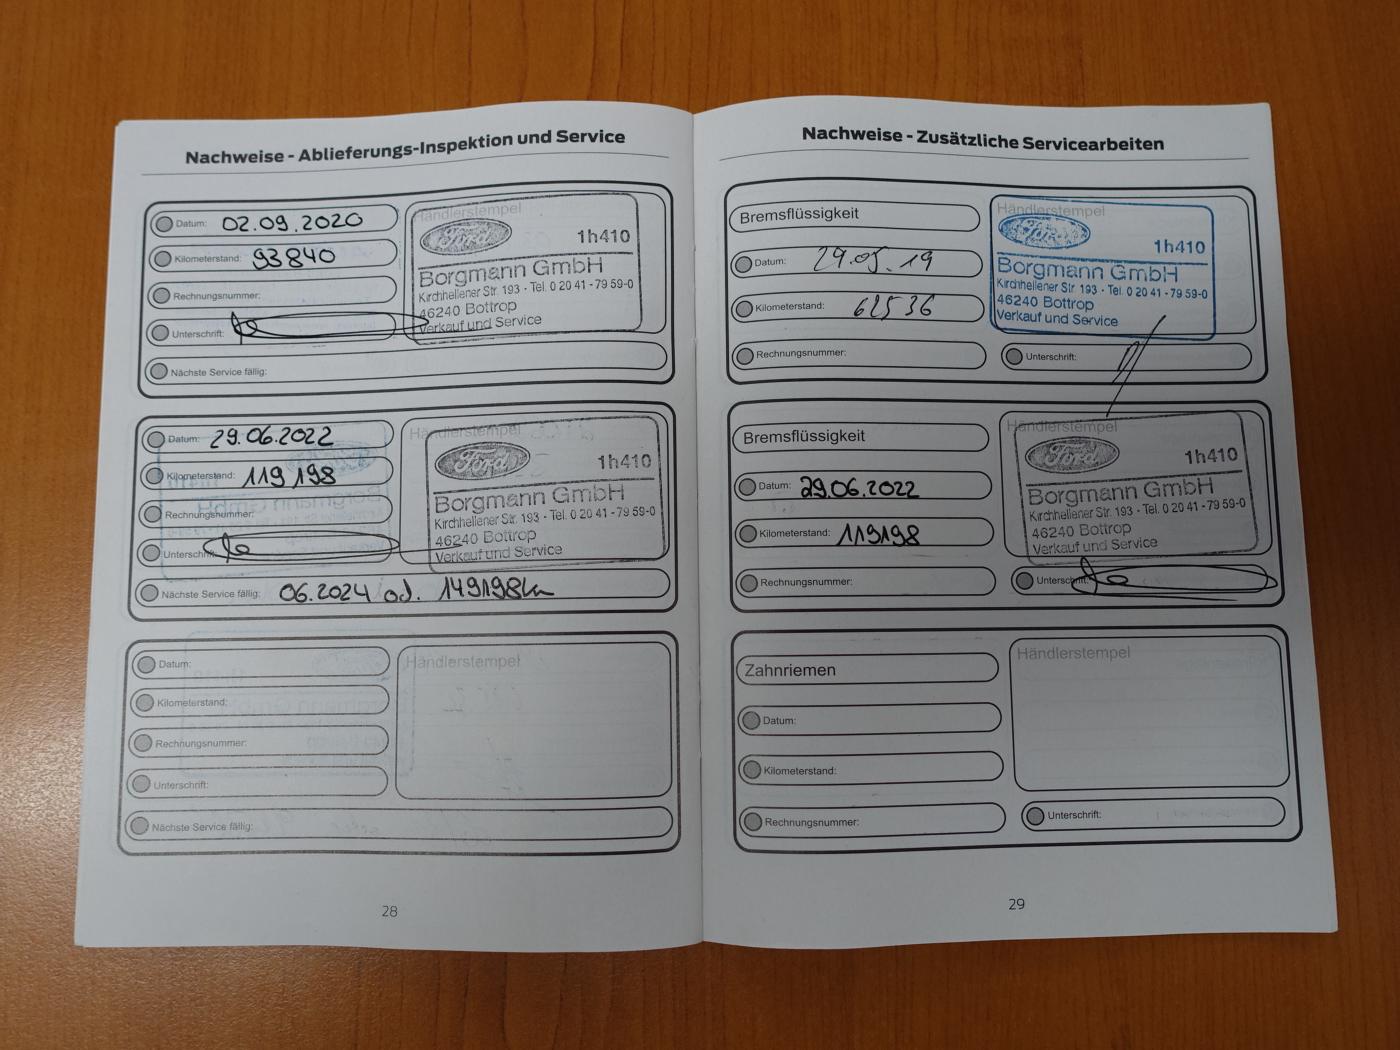 Nachweise - Ablieferungs-Inspektion und Service
Datum: 02.09.2020
Kilometerstand: 93840
Rechnungsnummer:
Unterschrift:
Nächste Service fällig:
Händlerstempel
Ford
1h410
Borgmann GmbH
Kirchhellener Str. 193 - Tel. 0 20 41 - 79 59-0
46240 Bottrop
Verkauf und Service
Datum: 29.06.2022
Kilometerstand: 119198
Rechnungsnummer:
Unterschrift:
Nächste Service fällig: 06.2024 od. 149198km
Händlerstempel
Ford
1h410
Borgmann GmbH
Kirchhellener Str. 193 - Tel. 0 20 41 - 79 59-0
46240 Bottrop
Verkauf und Service
Datum:
Kilometerstand:
Rechnungsnummer:
Unterschrift:
Nächste Service fällig:
Händlerstempel
28
Nachweise - Zusätzliche Servicearbeiten
Bremsflüssigkeit
Datum: 29.05.19
Kilometerstand: 62536
Rechnungsnummer:
Händlerstempel
Ford
1h410
Borgmann GmbH
Kirchhellener Str. 193 - Tel. 0 20 41 - 79 59-0
46240 Bottrop
Verkauf und Service
Unterschrift:
Bremsflüssigkeit
Datum: 29.06.2022
Kilometerstand: 119198
Rechnungsnummer:
Händlerstempel
Ford
1h410
Borgmann GmbH
Kirchhellener Str. 193 - Tel. 0 20 41 - 79 59-0
46240 Bottrop
Verkauf und Service
Unterschrift:
Zahnriemen
Datum:
Kilometerstand:
Rechnungsnummer:
Händlerstempel
Unterschrift:
29